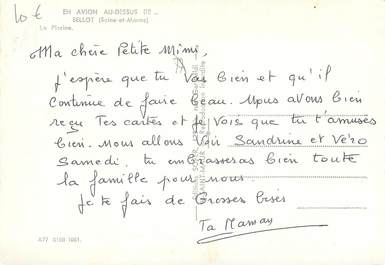 10 €
EN AVION AU-DESSUS DE ...
BELLOT (Seine-et-Marne)
La Piscine.
Ma chère Petite Mimi,
J'espère que tu vas bien et qu'il
continue de faire beau. Nous avons bien
reçu Tes cartes et je vois que tu t'amuses
bien. Nous allons voir Sandrine et Véro
Samedi. tu embrasseras bien toute
la famille pour nous.
Je te fais de Grosses bises
Ta Maman
A77